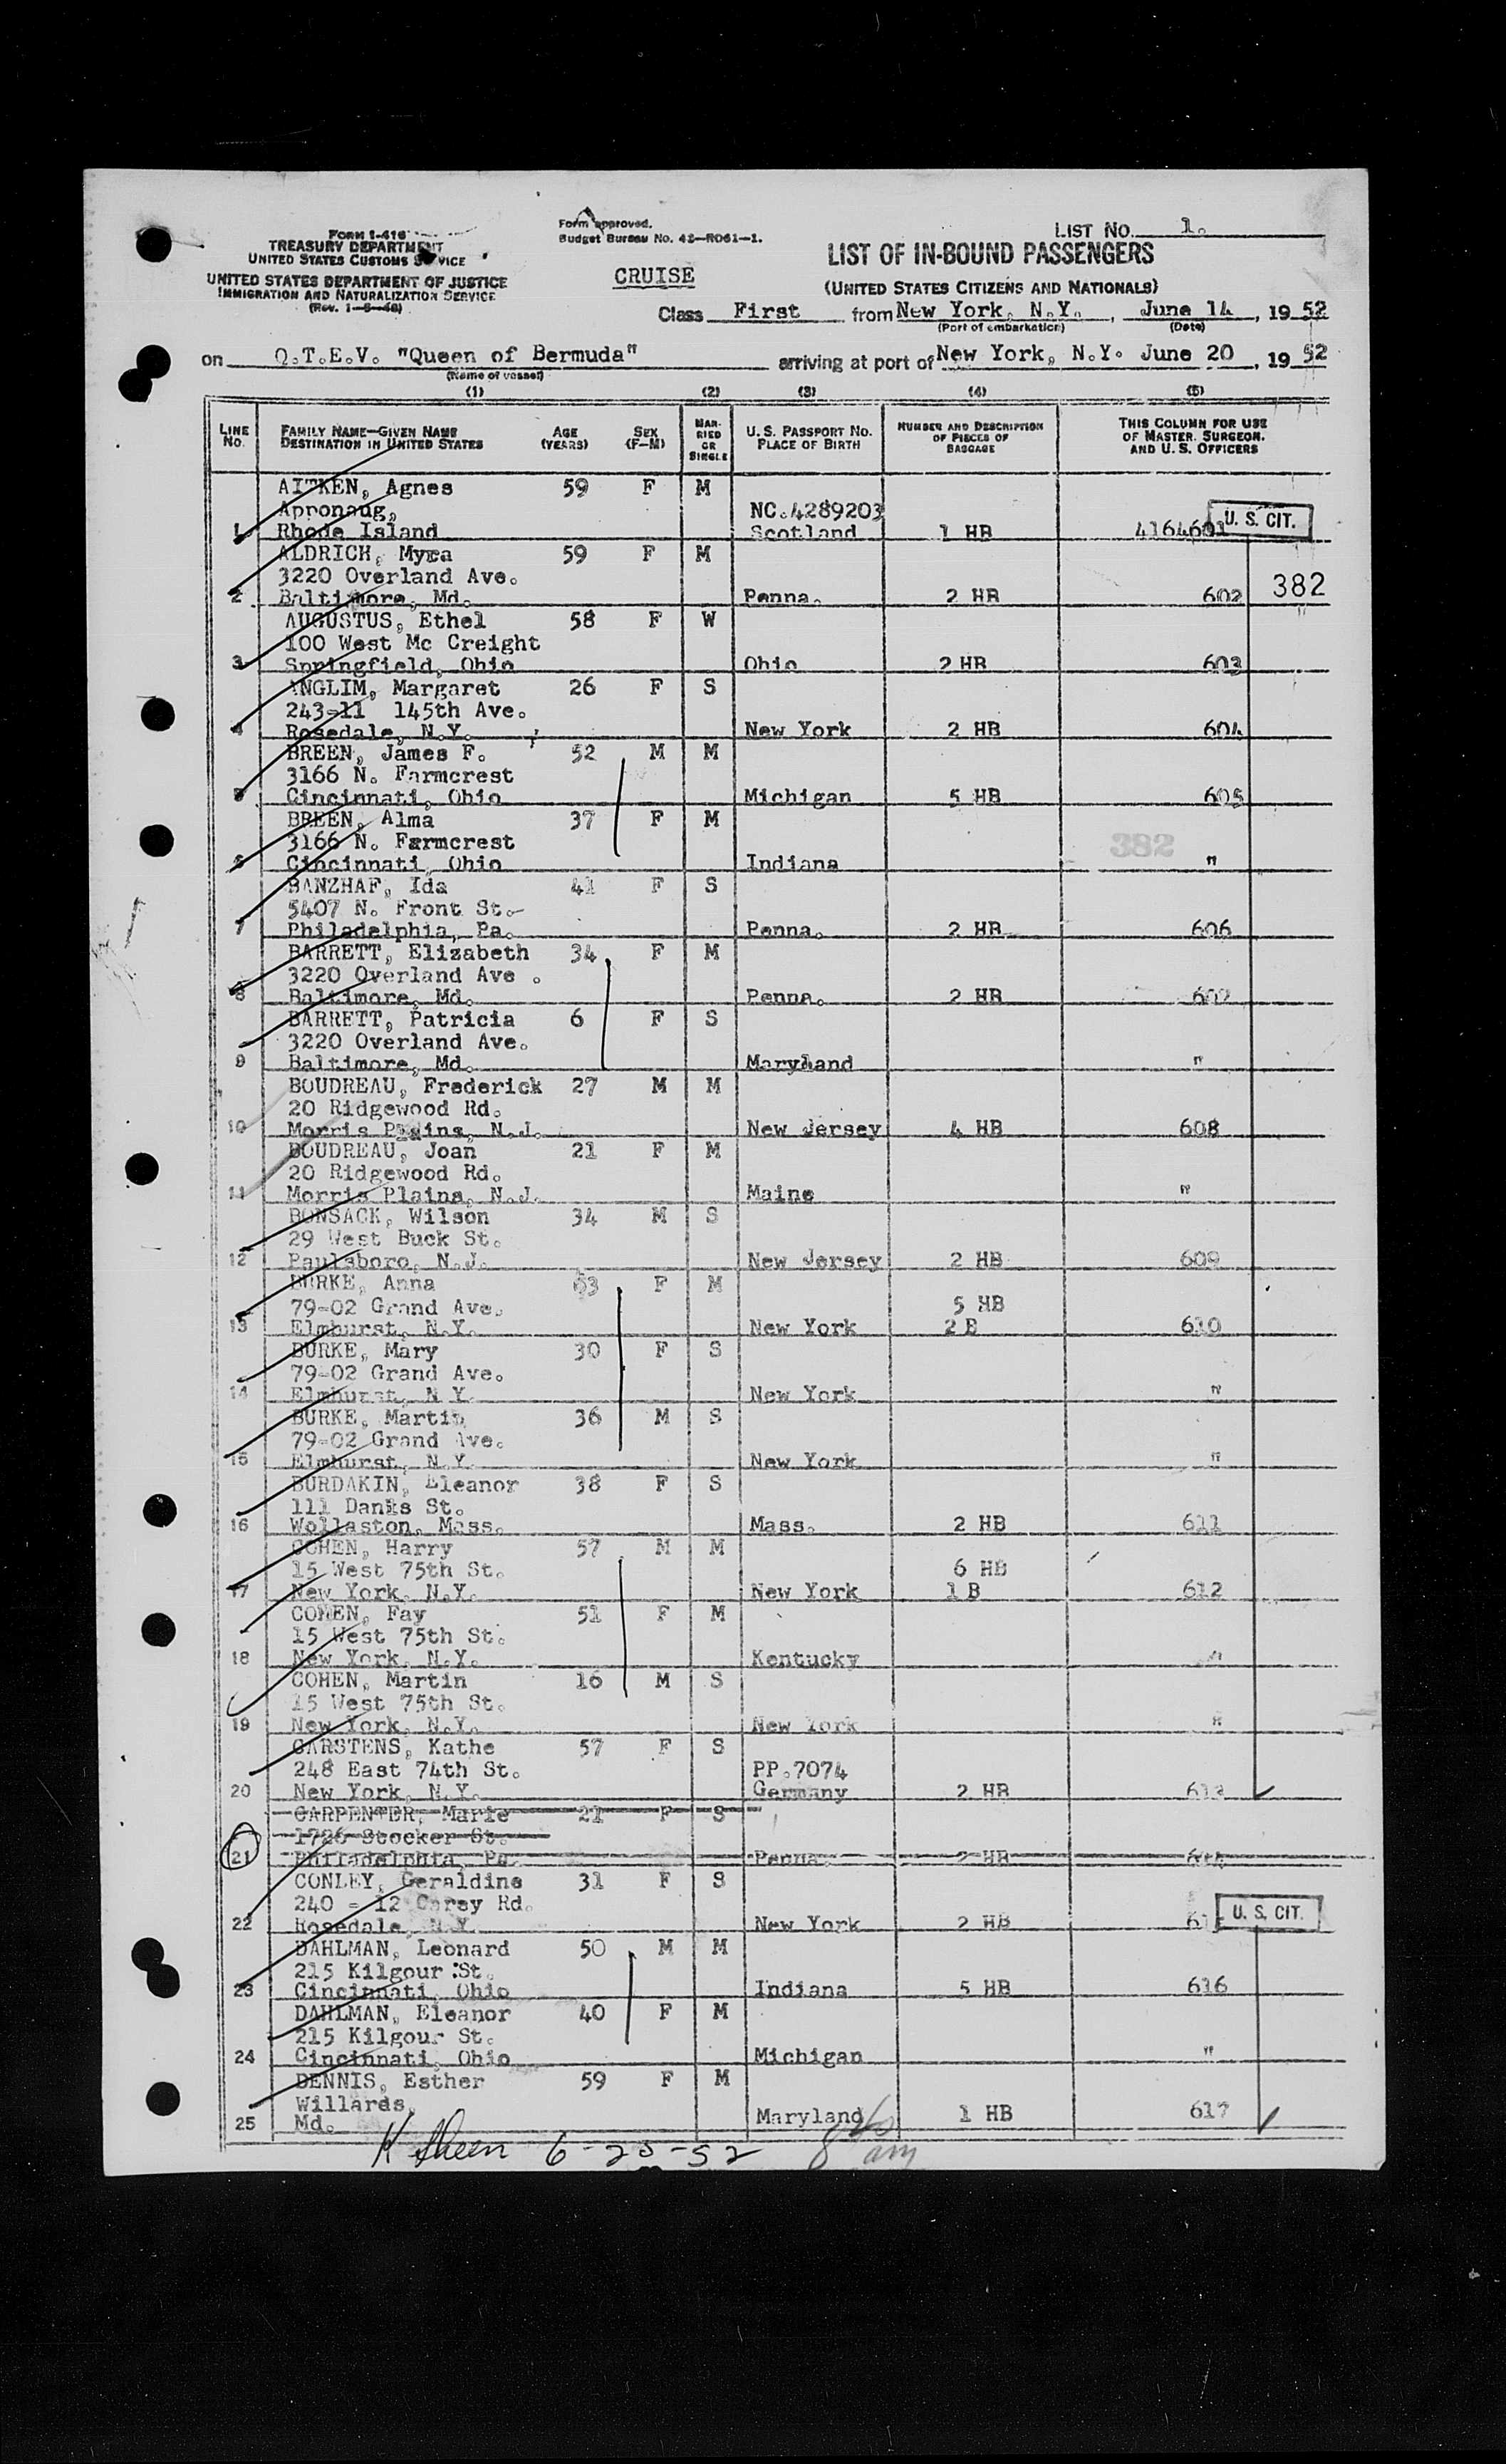 FORM I-416
TREASURY DEPARTMENT
UNITED STATES CUSTOMS SERVICE
UNITED STATES DEPARTMENT OF JUSTICE
IMMIGRATION AND NATURALIZATION SERVICE
(Rev. 1-5-48)
Form approved.
Budget Bureau No. 43-R061-1.
CRUISE
LIST No. 1.
LIST OF IN-BOUND PASSENGERS
(UNITED STATES CITIZENS AND NATIONALS)
Class First from New York, N.Y., June 14, 1952
(Port of embarkation) (Date)
on Q.T.E.V. "Queen of Bermuda" arriving at port of New York, N.Y. June 20, 1952
(Name of vessel)
(1) (2) (3) (4) (5)
LINE No. FAMILY NAME—GIVEN NAME DESTINATION IN UNITED STATES AGE (YEARS) SEX (F—M) MARRIED OR SINGLE U.S. PASSPORT NO. PLACE OF BIRTH NUMBER AND DESCRIPTION OF PIECES OF BAGGAGE THIS COLUMN FOR USE OF MASTER, SURGEON, AND U. S. OFFICERS
AITKEN, Agnes 59 F M
Apronaug, NC.4289203 U. S. CIT.
1 Rhode Island Scotland 1 HB 4164601
ALDRICH, Myra 59 F M
3220 Overland Ave. 382
2 Baltimore, Md. Penna. 2 HB 602 "
AUGUSTUS, Ethel 58 F W
100 West Mc Creight
3 Springfield, Ohio Ohio 2 HB 603
ANGLIM, Margaret 26 F S
243-11 145th Ave.
4 Rosedale, N.Y. New York 2 HB 604
BREEN, James F. 52 M M
3166 N. Farmcrest
5 Cincinnati, Ohio Michigan 5 HB 605
BREEN, Alma 37 F M
3166 N. Farmcrest 382
6 Cincinnati, Ohio Indiana "
BANZHAF, Ida 41 F S
5407 N. Front St.
7 Philadelphia, Pa. Penna. 2 HB 606
BARRETT, Elizabeth 34 F M
3220 Overland Ave .
8 Baltimore, Md. Penna. 2 HB 607
BARRETT, Patricia 6 F S
3220 Overland Ave.
9 Baltimore, Md. Maryland "
BOUDREAU, Frederick 27 M M
20 Ridgewood Rd.
10 Morris Plains, N.J. New Jersey 4 HB 608
BOUDREAU, Joan 21 F M
20 Ridgewood Rd.
11 Morris Plains, N.J. Maine "
BONSACK, Wilson 34 M S
29 West Buck St.
12 Paulsboro, N.J. New Jersey 2 HB 609
BURKE, Anna 63 F M
79-02 Grand Ave. 5 HB
13 Elmhurst, N.Y. New York 2 B 610
BURKE, Mary 30 F S
79-02 Grand Ave.
14 Elmhurst, N Y. New York "
BURKE, Martin 36 M S
79-02 Grand Ave.
15 Elmhurst, N.Y. New York "
BURDAKIN, Eleanor 38 F S
111 Danks St.
16 Wollaston, Mass. Mass. 2 HB 611
COHEN, Harry 57 M M
15 West 75th St. 6 HB
17 New York, N.Y. New York 1 B 612
COHEN, Fay 51 F M
15 West 75th St.
18 New York, N.Y. Kentucky "
COHEN, Martin 16 M S
15 West 75th St.
19 New York, N.Y. New York "
CARSTENS, Kathe 57 F S
248 East 74th St. PP.7074
20 New York, N.Y. Germany 2 HB 613
CARPENTER, Marie 21 F S
1726 Stocker St.
21 Philadelphia, Pa. Penna. 2 HB
CONLEY, Geraldine 31 F S
240 - 12 Carey Rd. U. S. CIT.
22 Rosedale, N.Y. New York 2 HB
DAHLMAN, Leonard 50 M M
215 Kilgour St.
23 Cincinnati, Ohio Indiana 5 HB 616
DAHLMAN, Eleanor 40 F M
215 Kilgour St.
24 Cincinnati, Ohio Michigan "
DENNIS, Esther 59 F M
Willards,
25 Md. Maryland 1 HB 617
6-20-52 am